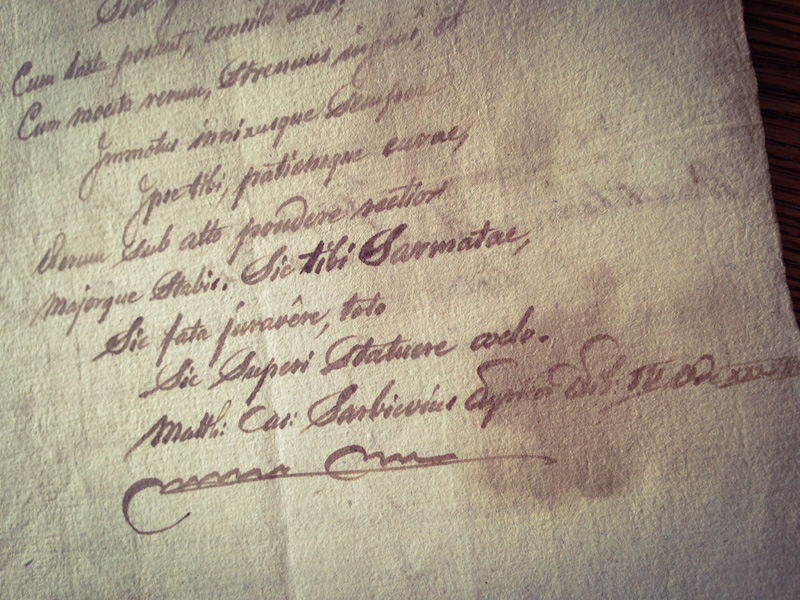 Cum laeta poscunt, consilii celer;
Cum moesta rerum, Strenuus ingenî, et
Immotus innixusque Semper
Ipse tibi, patiensque curae,
Rerum Sub alto pondere rectior
Majorque Stabis. Sic tibi Sarmatae,
Sic fata juravêre, toto
Sic Superi Statuere coelo.
Matth: Cas: Sarbievius Lyricor: Lib: